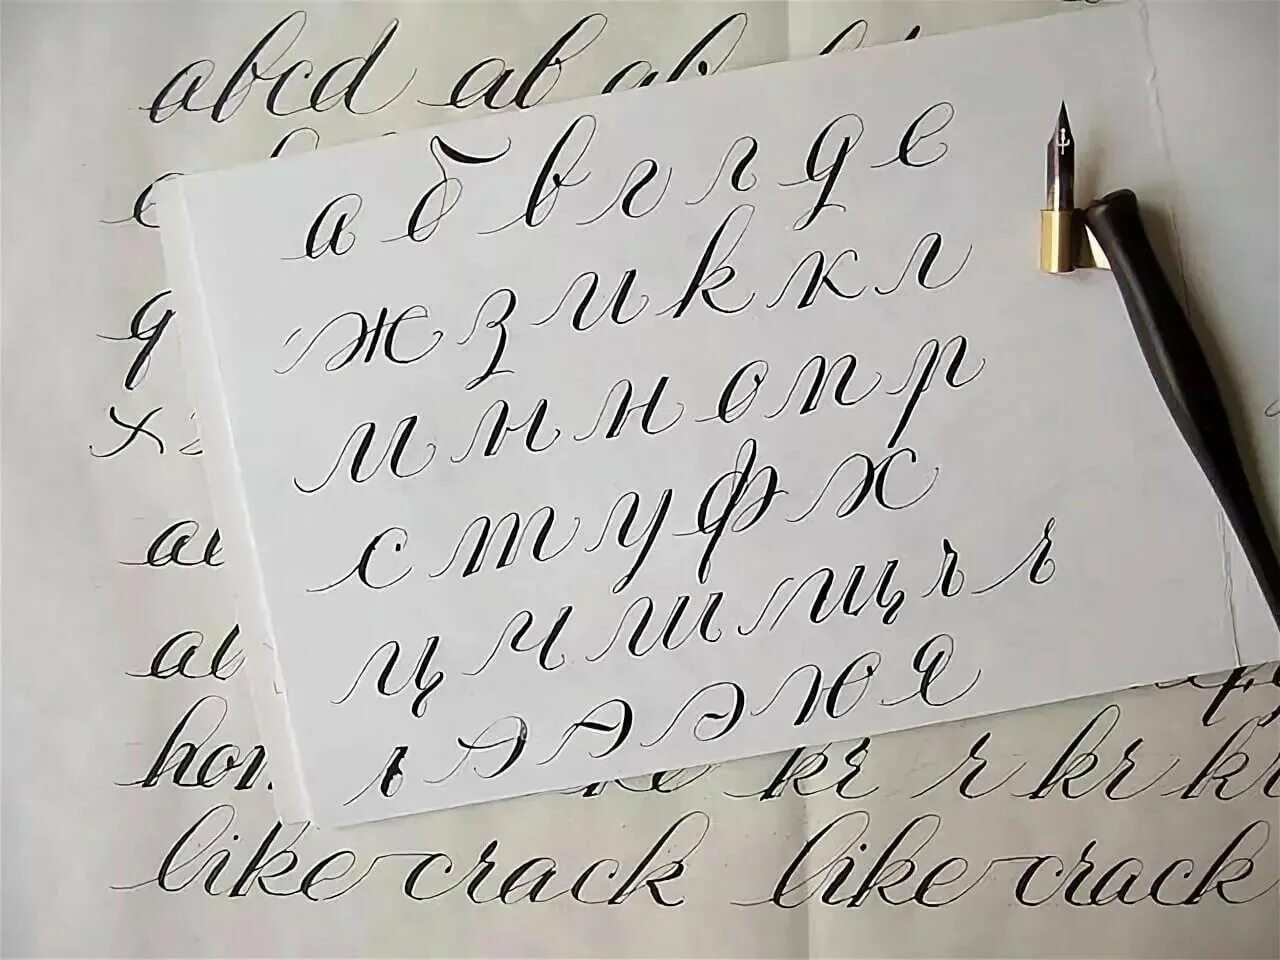 abcd ab ab
а б в г г д е
ж з и к к л
м н н о п р
с т у ф х
ц ч ш щ ъ ь
ь э э э ю я
q
x
hon
kr r kr kr
like crack like crack